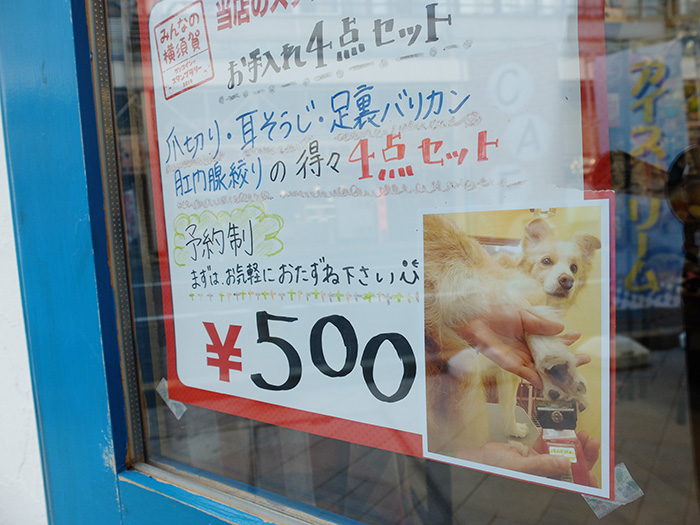 みんなの
横須賀
当店の
お手入れ4点セット
爪切り・耳そうじ・足裏バリカン
肛門腺絞りの得々4点セット
予約制
まずは、お気軽におたずね下さい
¥500
アイスクリーム
CAFE